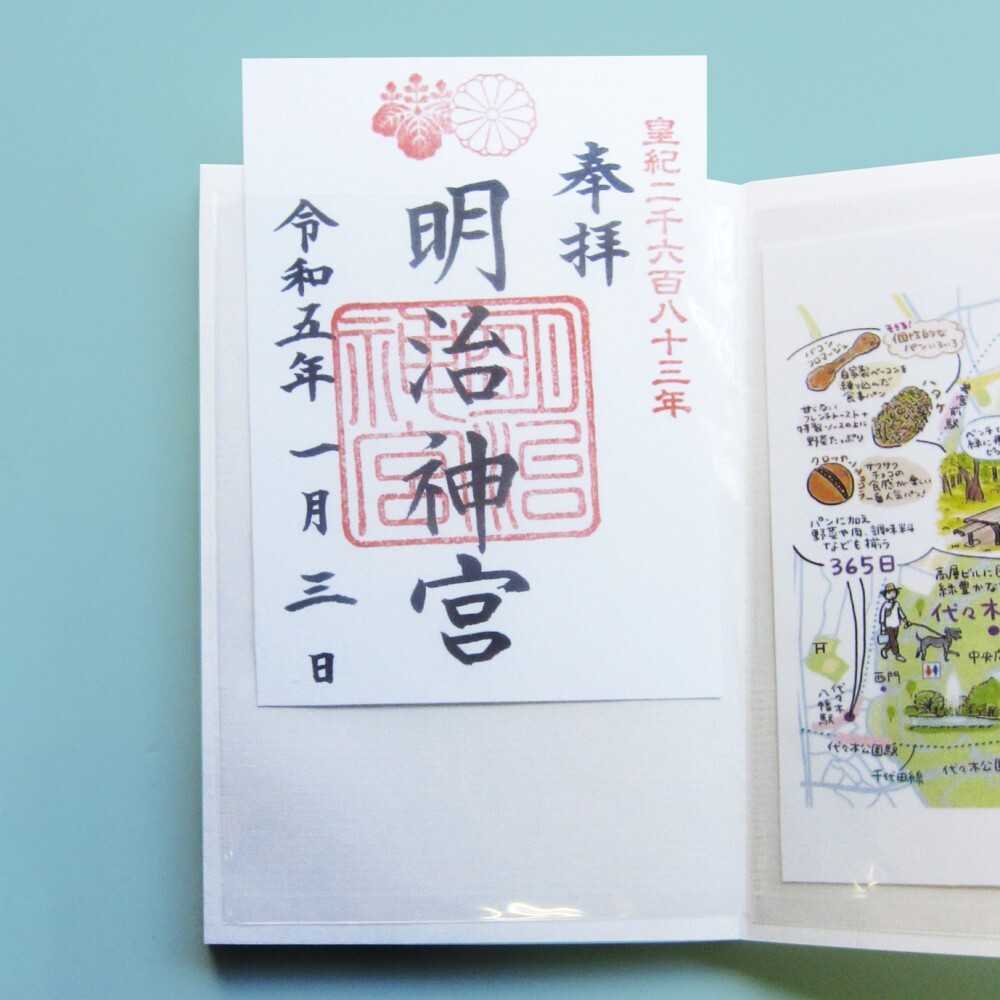 皇紀二千六百八十三年
奉拝
明治神宮
明治神宮
令和五年一月三日
そそる!
個性的な
パンいろいろ
ベーコン
フロマージュ
自家製ベーコンを
練り込んだ
食事パン
甘くない
フレンチトースト+
特製ソースの上に
野菜たっぷり
クロッカン
ショコラ
サクサク
チョコの
食感が楽しい
一番人気パン!
パンに加え
野菜や肉、調味料
なども揃う
365日
高層ビルに
緑豊かな
代々木
中央広
西門
代々木
八幡駅
代々木公園駅
千代田線
代々木公園